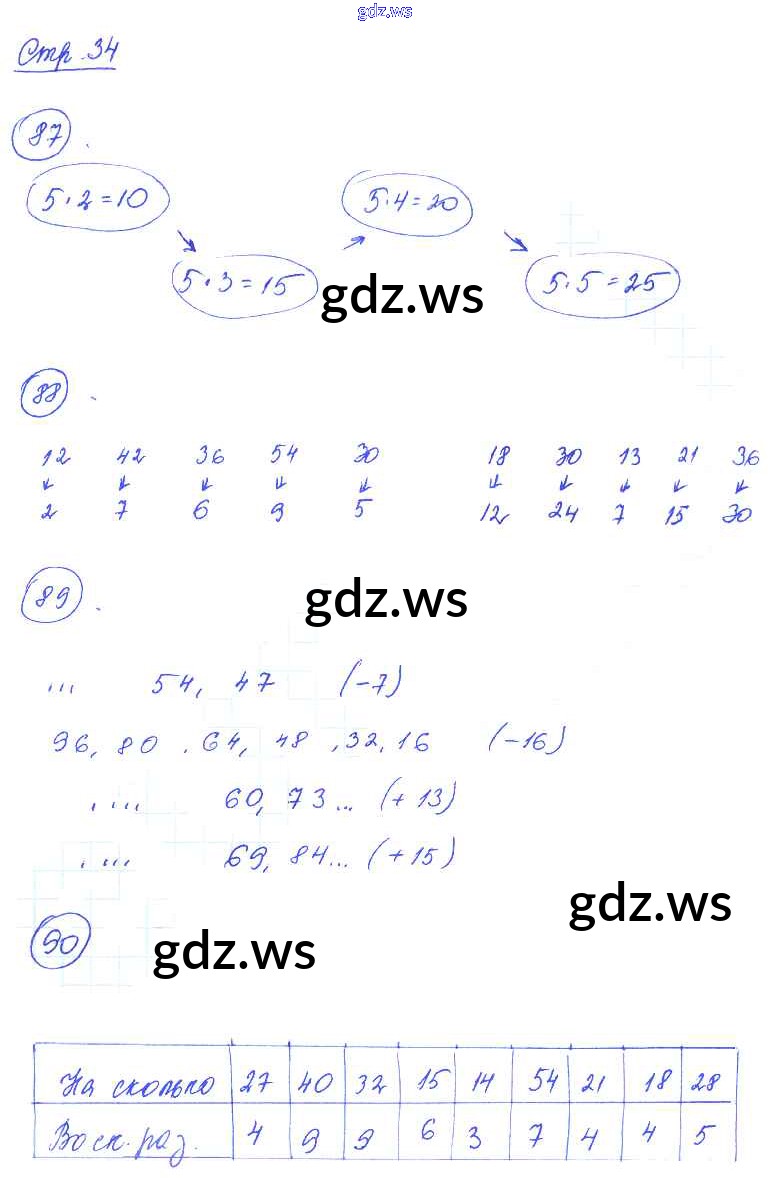 gdz.ws
Стр. 34
87.
5·2=10
5·4=20
5·3=15
5·5=25
gdz.ws
88.
12 42 36 54 30 18 30 13 21 36
↓ ↓ ↓ ↓ ↓ ↓ ↓ ↓ ↓ ↓
2 7 6 9 5 12 24 7 15 30
89.
gdz.ws
... 54, 47 (-7)
96, 80, 64, 48, 32, 16 (-16)
.... 60, 73... (+13)
.... 69, 84... (+15)
gdz.ws
90
gdz.ws
На сколько 27 40 32 15 14 54 21 18 28
Во ск. раз. 4 9 9 6 3 7 4 4 5